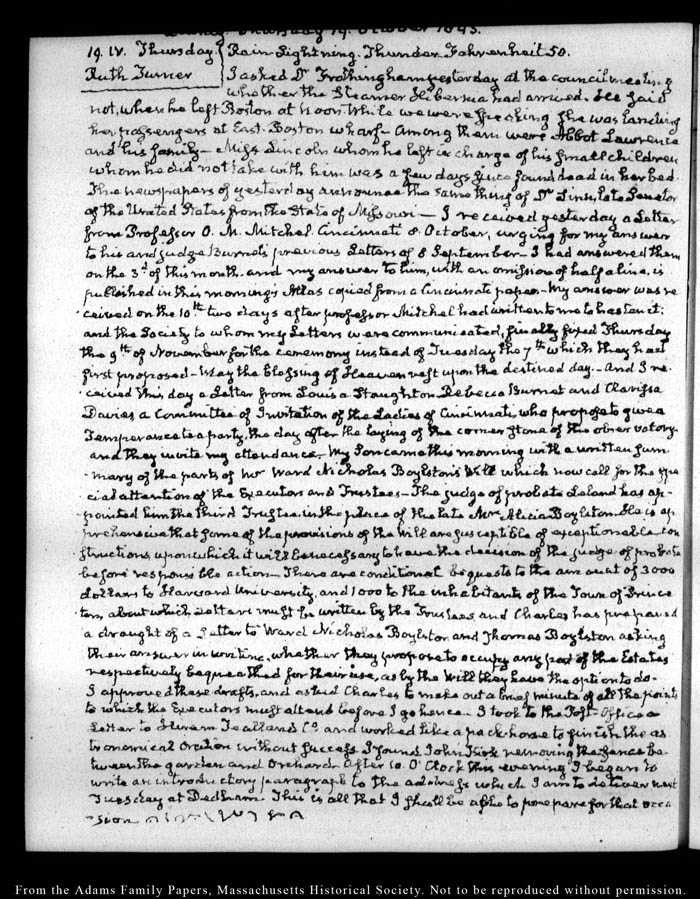 Quincy, Thursday 19. October 1843.
19. IV. Thursday. Rain Lightning. Thunder. Fahrenheit 50.
Ruth Turner I asked Dr Frothingham yesterday at the council meeting
whether the Steamer Hibernia had arrived. He said
not, when he left Boston at noon. While we were speaking she was landing
her passengers at East-Boston wharf — Among them were Abbot Lawrence
and his family — Miss Lincoln whom he left in charge of his small children
whom he did not take with him was a few days since found dead in her bed.
The newspapers of yesterday announce the same thing of Dr Linn, late Senator
of the United States from the State of Missouri — I received yesterday a Letter
from Professor O. M. Mitchel Cincinnati 8. October, urging for my answer
to his and judge Burnet's previous Letters of 8 September — I had answered them
on the 3d of this month. and my answer to him, with an omission of half a line, is
published in this morning's Atlas copied from a Cincinnati paper — My answer was re
ceived on the 10th two days after professor Mitchel had written to me to hasten it;
and the Society to whom my Letters were communicated, finally fixed Thursday
the 9th of November for the ceremony instead of Tuesday the 7th which they had
first proposed — May the blessing of Heaven rest upon the destined day. — And I re
ceived this day a Letter from Louisa Staughton, Rebecca Burnet and Clarissa
Davies a Committee of Invitation of the Ladies of Cincinnati, who propose to give a
Temperance tea party, the day after the laying of the corner stone of the observatory.
and they invite my attendance. My Son came this morning with a written sum
mary of the parts of Mr Ward Nicholas Boylston's Will which now call for the spe
cial attention of the Executors and Trustees — The judge of probate Leland has ap
pointed him the third Trustee in the place of the late Mrs Alicia Boylston. He is ap
prehensive that some of the provisions of the Will are susceptible of exceptionable con
structions, upon which it will be necessary to have the decision of the judge of probate
before responsible action — There are conditional bequests to the amount of 3000
dollars to Harvard University, and 1000 to the inhabitants of the Town of Prince
ton, about which Letters must be written by the Trustees, and Charles has prepared
a draught of a Letter to Ward Nicholas Boylston and Thomas Boylston asking
their answer in writing, whether they propose to occupy any part of the Estates
respectively bequeathed for their use, as by the Will they have the option to do —
I approved these drafts, and asked Charles to make out a brief minute of all the points
to which the Executors must attend before I go hence — I took to the Post-Office a
Letter to Hiram and Co and worked like a pack-horse to finish the as
tronomical Oration without success. I found John Kirk removing the fence be
tween the garden and Orchard. After 10. O'Clock this evening I began to
write an introductory paragraph to the address which I am to deliver next
Tuesday at Dedham. This is all that I shall be able to prepare for that occa
sion
From the Adams Family Papers, Massachusetts Historical Society. Not to be reproduced without permission.